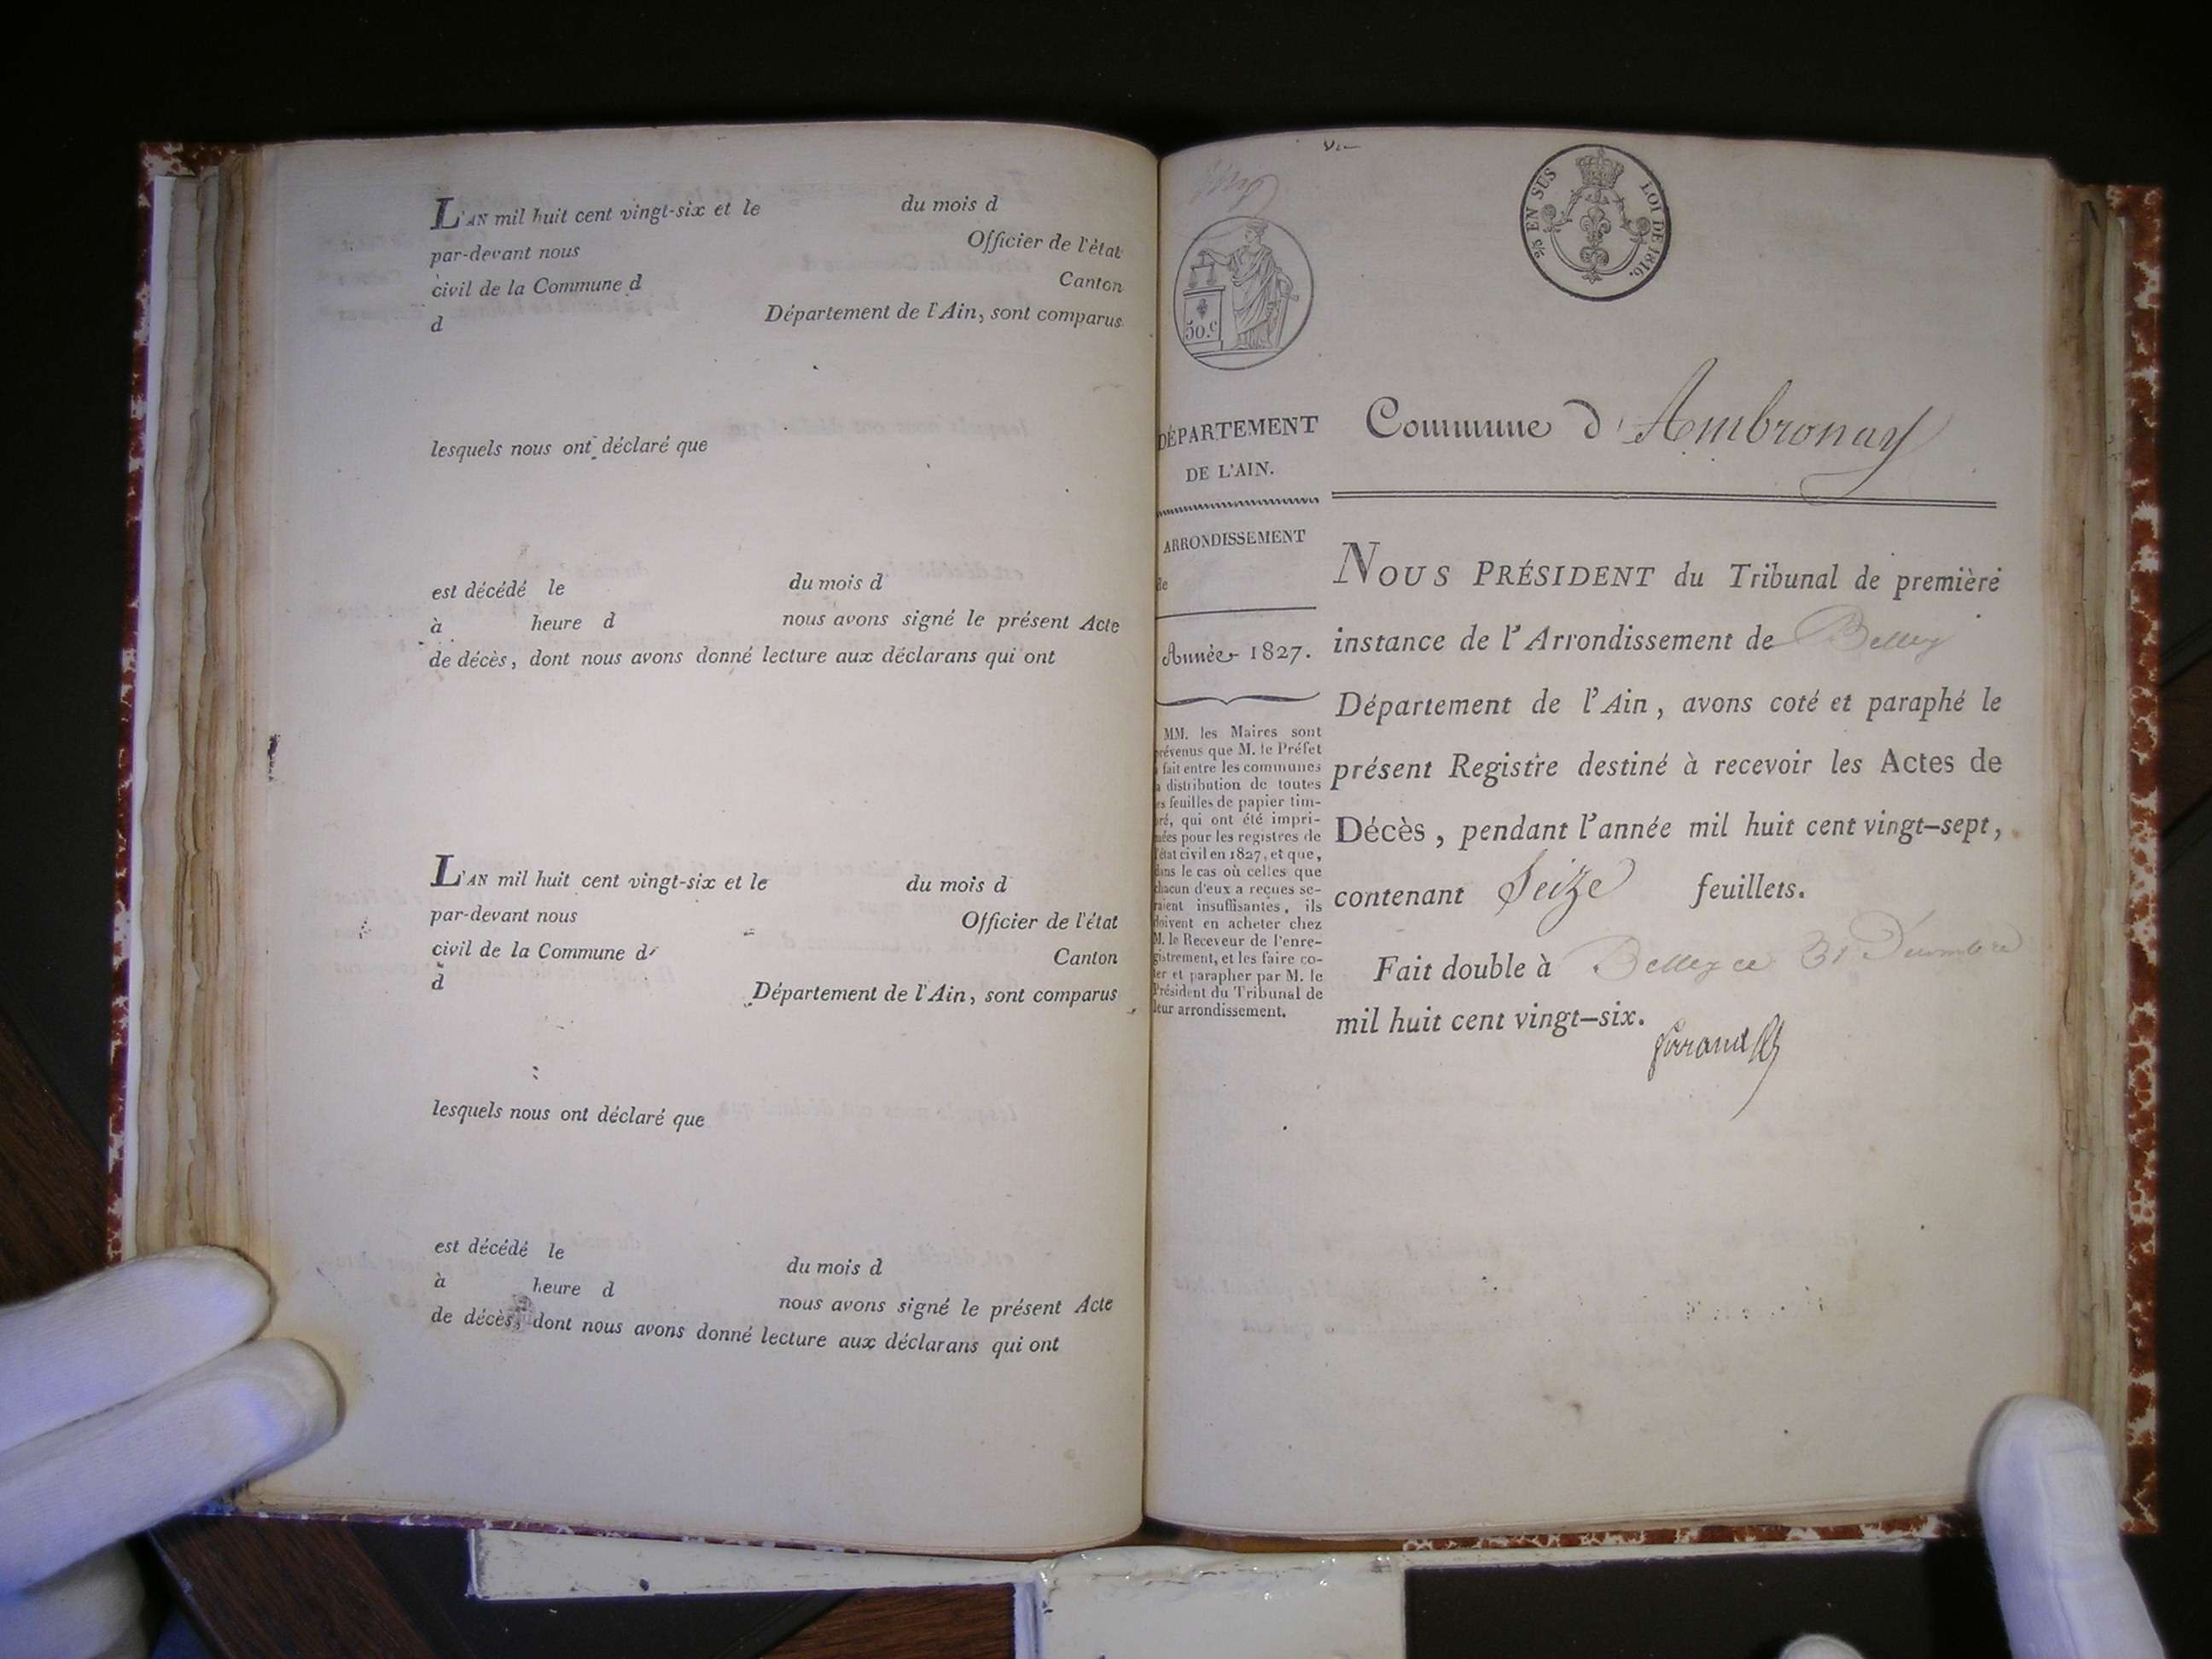 L'AN mil huit cent vingt-six et le du mois d
par-devant nous Officier de l'état
civil de la Commune d Canton
d Département de l'Ain, sont comparus
lesquels nous ont déclaré que
est décédé le du mois d
à heure d nous avons signé le présent Acte
de décès, dont nous avons donné lecture aux déclarans qui ont
L'AN mil huit cent vingt-six et le du mois d
par-devant nous Officier de l'état
civil de la Commune d Canton
d Département de l'Ain, sont comparus
lesquels nous ont déclaré que
est décédé le du mois d
à heure d nous avons signé le présent Acte
de décès, dont nous avons donné lecture aux déclarans qui ont
EN SUS LOI DE 1816.
50.c
DÉPARTEMENT
DE L'AIN.
ARRONDISSEMENT
de
Année 1827.
MM. les Maires sont
prévenus que M. le Préfet
a fait entre les communes
la distribution de toutes
les feuilles de papier tim-
bré, qui ont été impri-
mées pour les registres de
l'état civil en 1827, et que,
dans le cas où celles que
chacun d'eux a reçues se-
raient insuffisantes, ils
doivent en acheter chez
M. le Receveur de l'enre-
gistrement, et les faire co-
ter et parapher par M. le
Président du Tribunal de
leur arrondissement.
Commune d'Ambronay
NOUS PRÉSIDENT du Tribunal de première
instance de l'Arrondissement de Belley
Département de l'Ain, avons coté et paraphé le
présent Registre destiné à recevoir les Actes de
Décès, pendant l'année mil huit cent vingt-sept,
contenant Seize feuillets.
Fait double à Belley ce 31 Decembre
mil huit cent vingt-six.